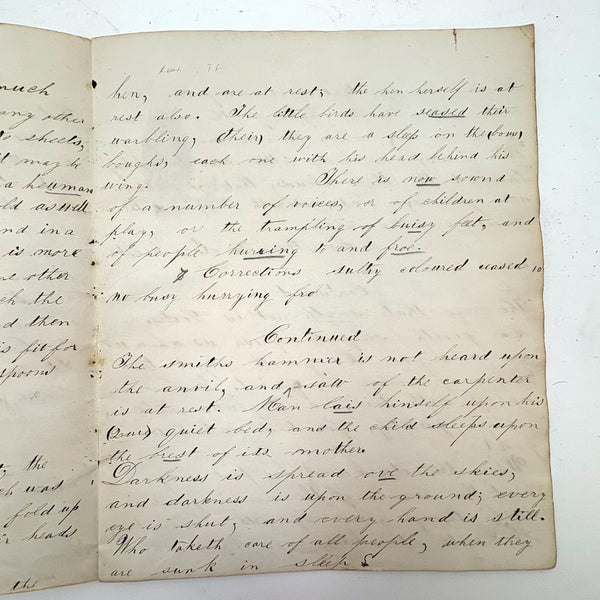 much
any other
sheets,
it may be
a hewman
old as well
and in a
is more
other
the
d then
is fit for
spoons
the
was
fold up
heads
the
hen, and are at rest; the hen herself is at
rest also. The little birds have seased their
warbling, (their) they are a sleep on the (bows)
boughs, each one with his head behind his
wing. There is now sound
of a number of voices, or of children at
play, or the trampling of buisy feet, and
of people hurring to and froe.
Corrections sultry coloured ceased 10
no busy hurrying fro
Continued
The smiths hammer is not heard upon
the anvil, and ^ saw of the carpenter
is at rest. Man lais himself upon his
quiet bed, and the child sleeps upon
the brest of its mother.
Darkness is spread ove the skies,
and darkness is upon the ground; every
eye is shut, and every hand is still.
Who taketh care of all people, when they
are sunk in sleep?